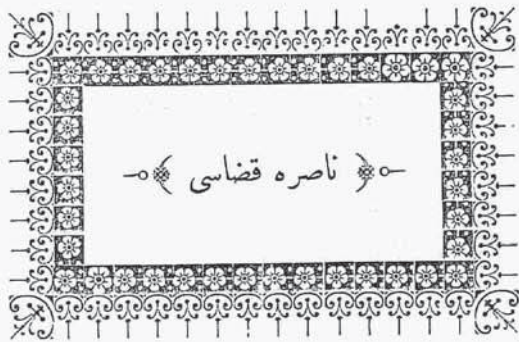 ناصره قضاسی